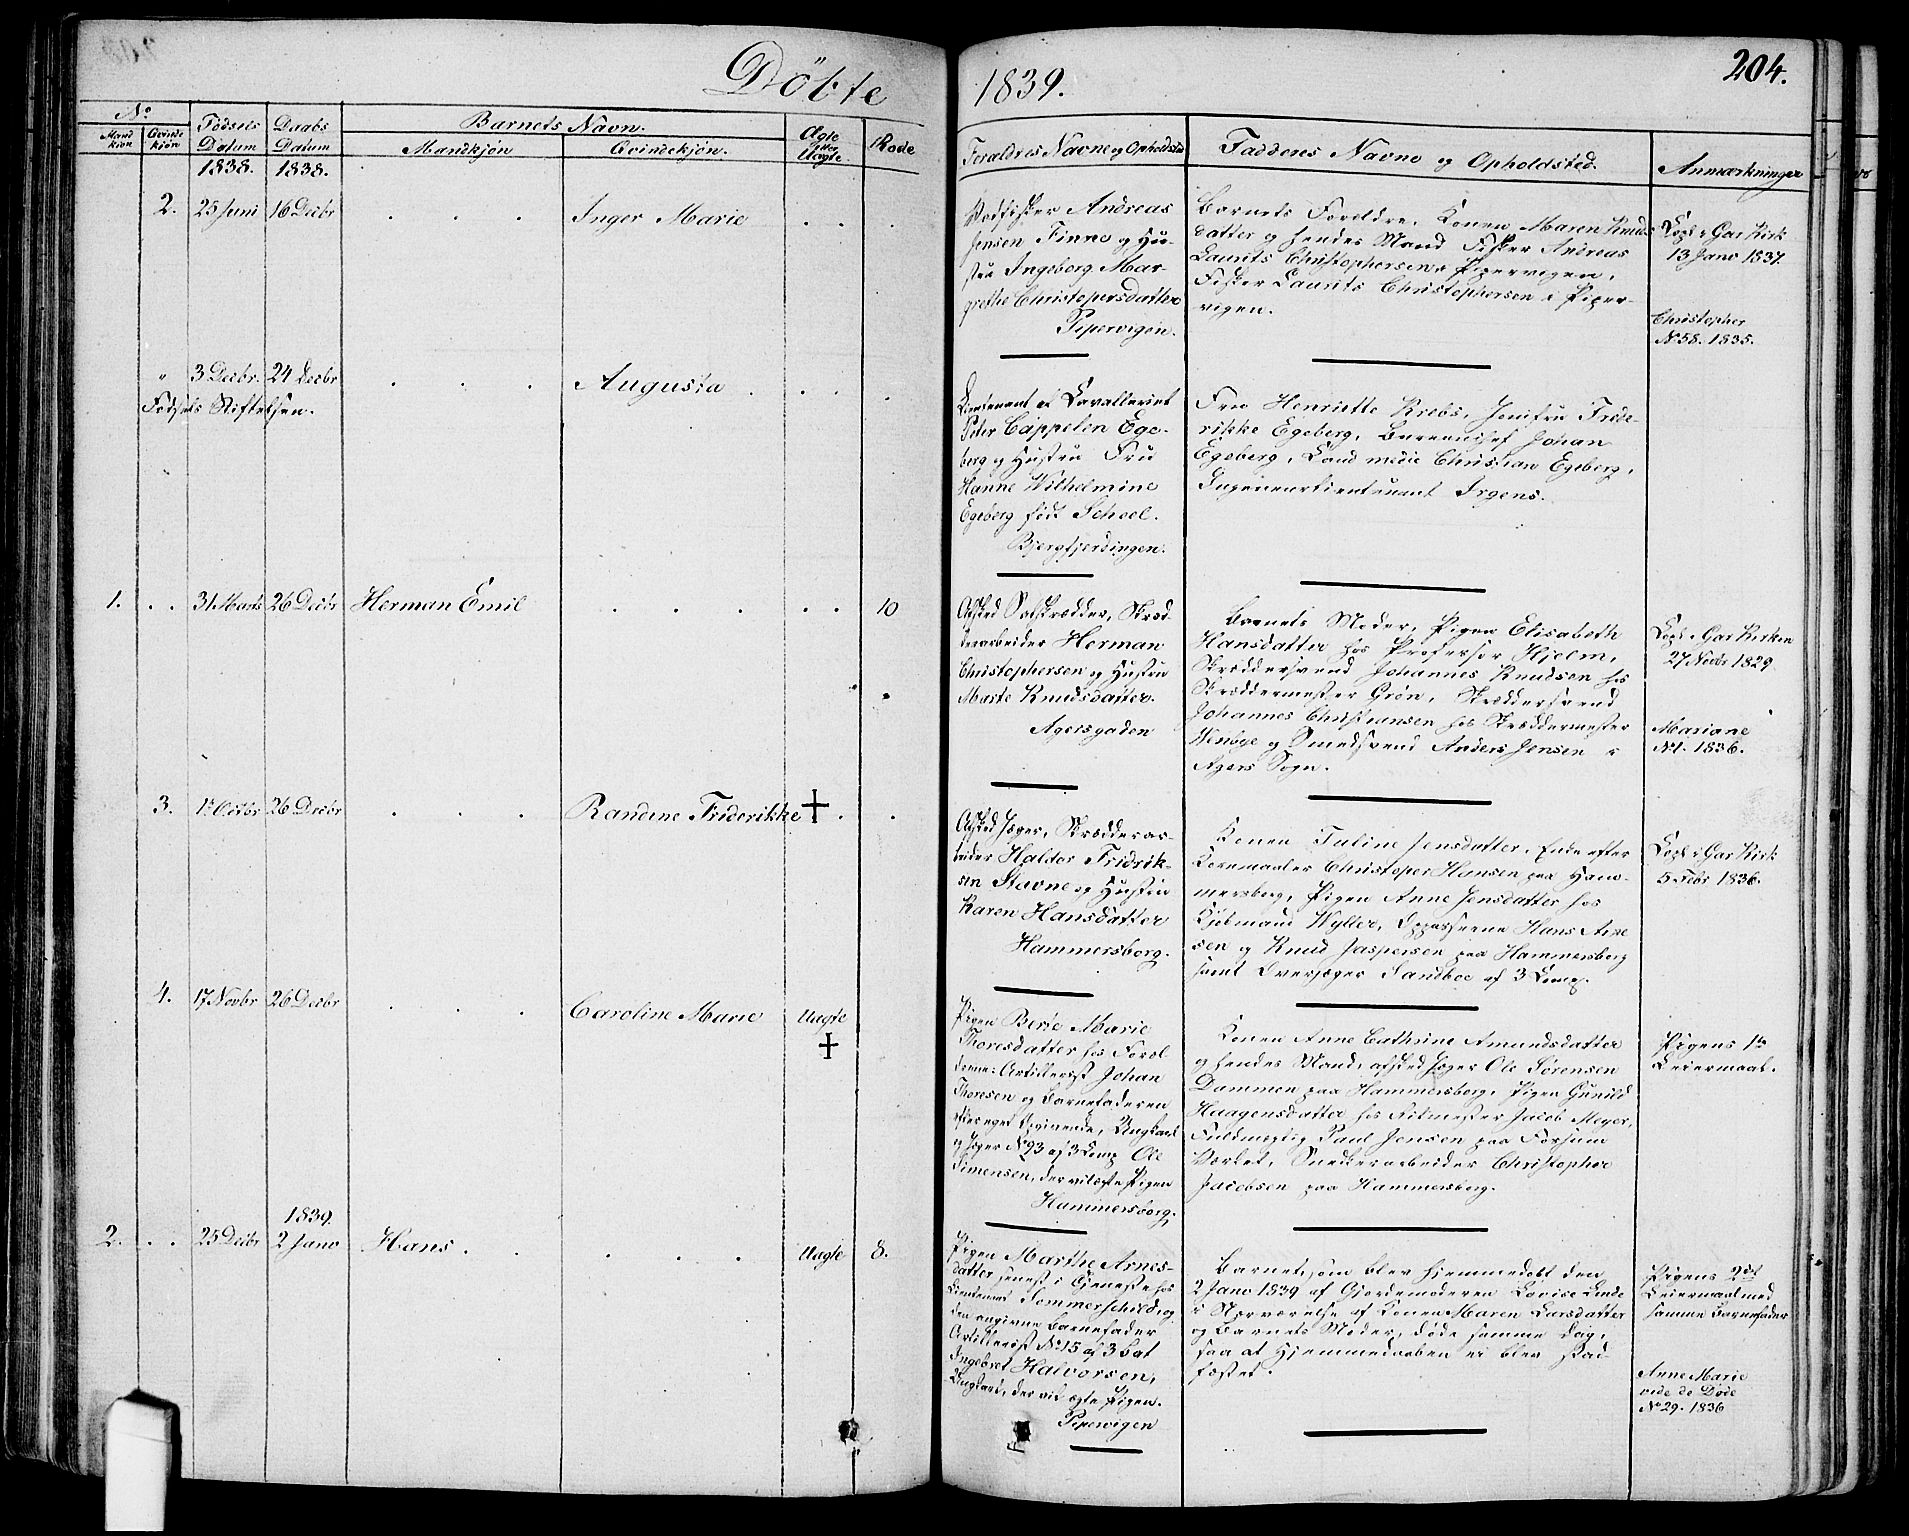 Döbte
1839.
204.
No
Mandkjön
Qvindekjön
Födsels Datum
Daabs Datum
Barnets Navn.
Mandkjön
Qvindekjön.
Ægte eller Uægte
Rode
Forældres Navne og Opholdsted
Faddernes Navne og Opholdsted.
Anmærkninger
1838. 1838.
2. 25 Juni 16 Decbr Inger Marie
Andreas
Jensen Finne og Hu-
stru Ingeborg Mar-
grethe Christophersdatter
Pipervigen.
Barnets Foreldre, Konen Maren Knuds
datter og hendes Mand Fisker Andreas
Laurits Christophersen i Pipervigen,
Fisker Laurits Christophersen i Piper-
vigen.
Copl. i Gar Kirk
13 Jano 1837.
Christopher
No 58. 1835.
" 3 Decbr. 24 Decbr Augusta
Fødsels Stiftelsen.
Lieutenant af Cavalleriet
Peter Cappelen Ege-
berg og Hustru Fru
Hanne Wilhelmine
Egeberg født Scheel.
Bjergfjerdingen.
Fru Henriette Krebs, Jomfru Frede-
rikke Egeberg, Bureauchef Johan
Egeberg, Cand. medic Christian Egeberg,
Ingenieurlieutenant Irgens.
1. 31 Marts 26 Decbr Herman Emil 10
Afsked Soldat, Skræd-
derarbeider Herman
Christophersen og Hustru
Marte Knudsdatter.
Agersgaden
Barnets Moder, Pigen Elisabeth
Hansdatter hos Professor Hjelm,
Skræddersvend Johannes Knudsen hos
Skræddermester Grön, Skræddersvend
Johannes Christiansen hos Skræddermester
Winbye og Smedsvend Anders Jensen i
Agers Sogn.
Copl. i Gar Kirken
27 Novbr 1829
Mariane
No 1. 1836.
3. 1ste Octbr 26 Decbr Randine Friderikke +
Afsked Jæger, Skrædderar-
beider Haldor Fridrik-
sen Stavne og Hustru
Karen Hansdatter
Hammersborg.
Konen Taline Jensdatter, Enke efter
Christopher Hansen paa Ham-
mersborg, Pigen Anne Jensdatter hos
Kjøbmand Wyller, Oppasserne Hans Arne
sen og Knud Jaspersen paa Hammersborg
samt Overjæger Sandboe af 3 Comp.
Copl. i Gar Kirk
5 Febr 1836.
4. 17 Novbr 26 Decbr Caroline Marie Uægte
+
Pigen Berte Marie
Thoresdatter hos Forel
drene: Artillerist Johan
Thoresen og Barnefaderen
efter eget Opgivende, Ungkarl
og Jæger No 93 af 3 Comp Ole
Simensen, der vil ægte Pigen
Hammersborg.
Konen Anne Cathrine Amundsdatter
og hendes Mand, afsked Jæger Ole Sörensen
Dammen paa Hammersborg, Pigen Gunild
Haagensdatter hos Jacob Meyer,
Fuldmægtig Paul Jensen paa Fossum
Værket, Snedkerarbeider Christopher
Jacobsen paa Hammersborg.
Pigens 1ste
Leiermaal.
1839.
2. 25 Decbr 2 Jano Hans. Uægte 8.
Pigen Marthe Arnes-
datter senest i Tjeneste hos
Lieutenant Sommerschild, og
den angivne Barnefader
Artillerist No 15 af 3 Bat
Ingebret Halvorsen,
Ungkarl, der vil ægte Pigen.
Pipervigen
Barnet, som blev hjemmedöbt den
2 Jano 1839 af Gjordemoderen Lovise Linde
i Nærværelse af Konen Maren Larsdatter
og Barnets Moder, döde samme Dag,
saa at Hjemmedaaben ei blev stad-
fæstet.
Pigens 2det
Leiermaal med
samme Barnefader
Anne Marie
vide de Døde
No 29. 1836